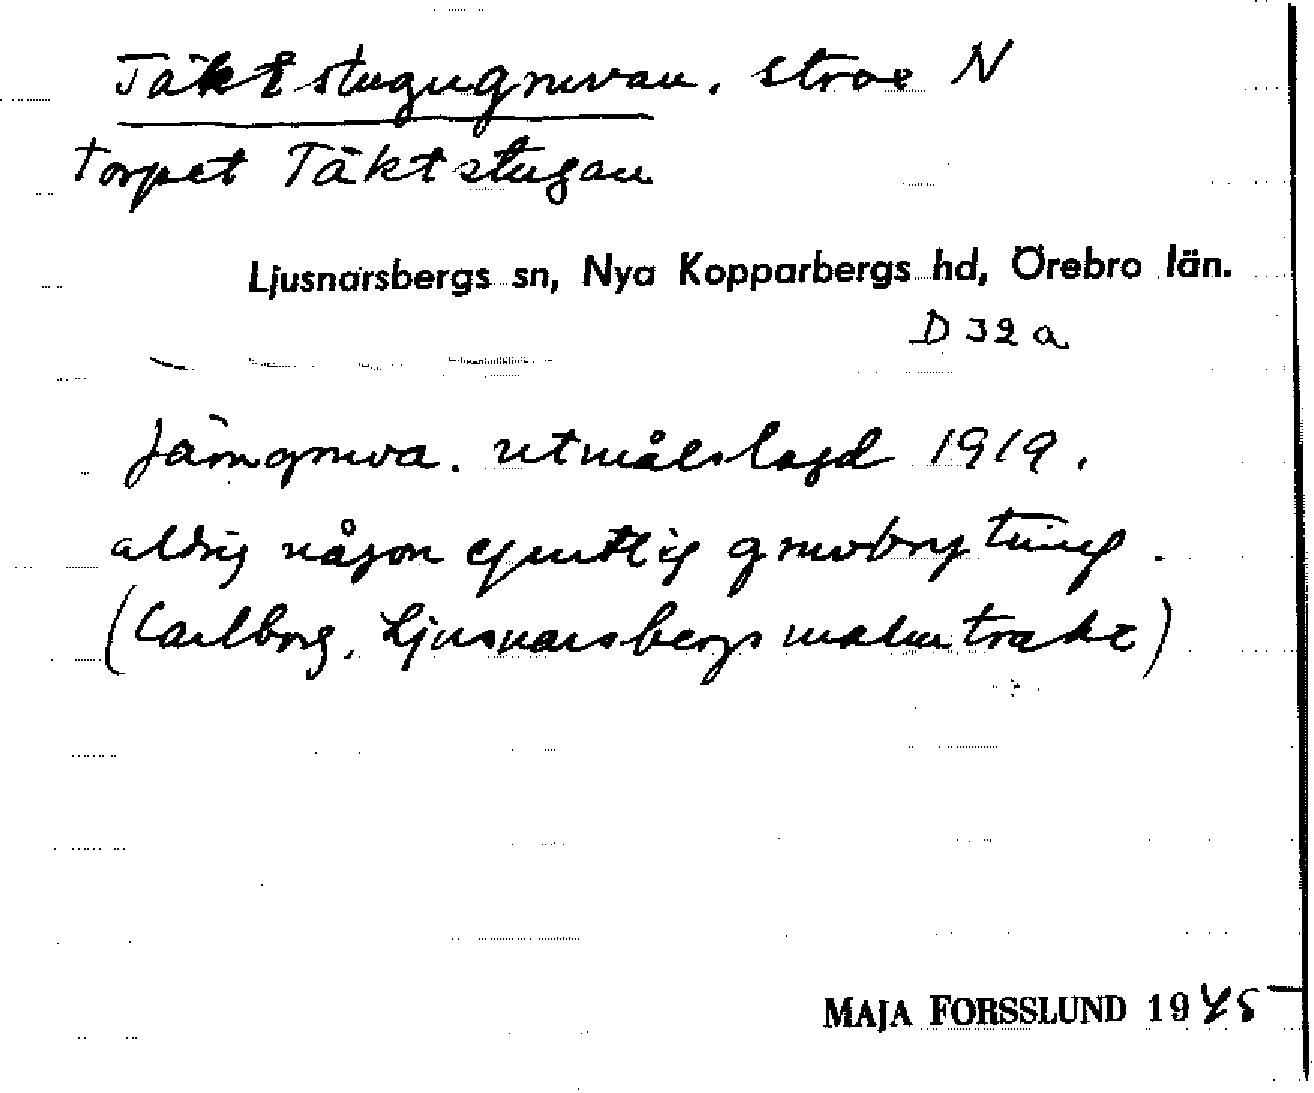 Täktstugugruvan, strax N
torpet Täktstugan
Ljusnarsbergs sn, Nya Kopparbergs hd, Örebro län.
D 32 a
Järngruva. utmålslagd 1919.
aldrig någon egentlig gruvbrytning.
(Carlborg, Ljusnarsbergs malmtrakt)
MAJA FORSSLUND 1945